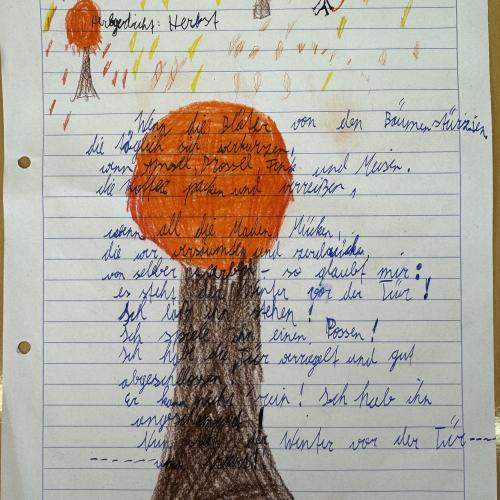 Herbstgedicht: Herbst
Wenn die Blätter von den Bäumen stürzen,
die täglich sich verkürzen,
wenn Amsel, Drossel, Fink und Meisen.
die Koffer packen und verreißen,
wenn all die Maden, Mücken,
die wir versäumten zu zerdrücken
von selber – so glaubt mir:
es steht der Winter vor der Tür!
Ich laß ihn stehen!
Ich spiel ihm einen Possen!
Ich hab die Tür verriegelt und gut
abgeschlossen!
Er kann nicht rein! Ich hab ihn
angeschmiert!
Nun steht der Winter vor der Tür ---
------ und friert!